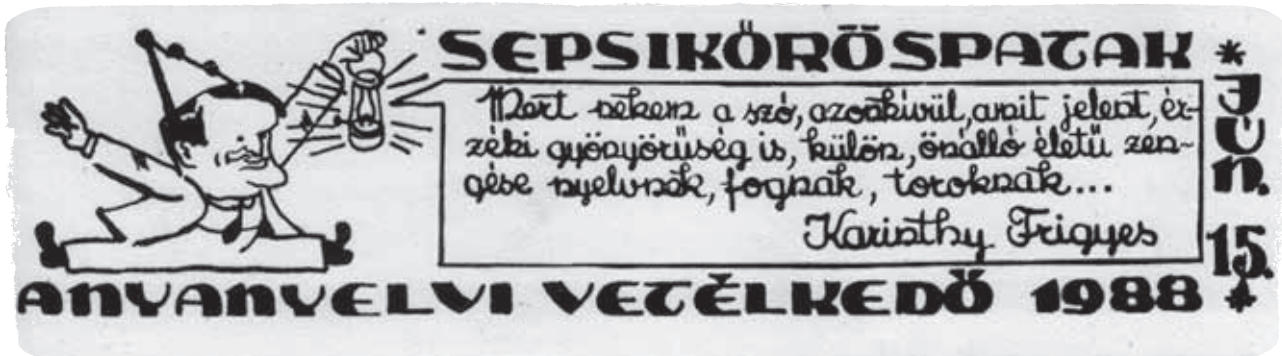 SEPSIKŐRÖSPATAK
Mert nekem a szó, azonkívül, amit jelent, ér-
zéki gyönyörűség is, külön, önálló életű zen-
gése nyelvnek, fognak, toroknak...
Karinthy Frigyes
ANYANYELVI VETÉLKEDŐ 1988
* JÚN. 15. *